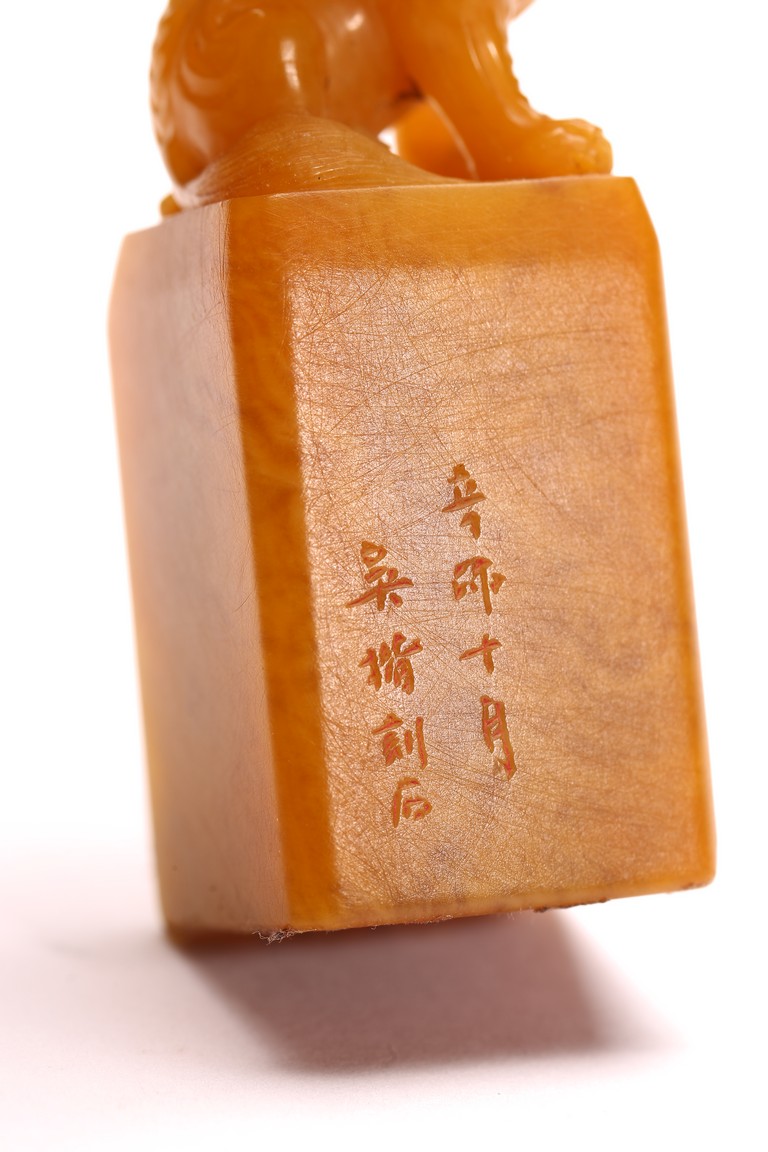 辛卯十月
吴楷刻石